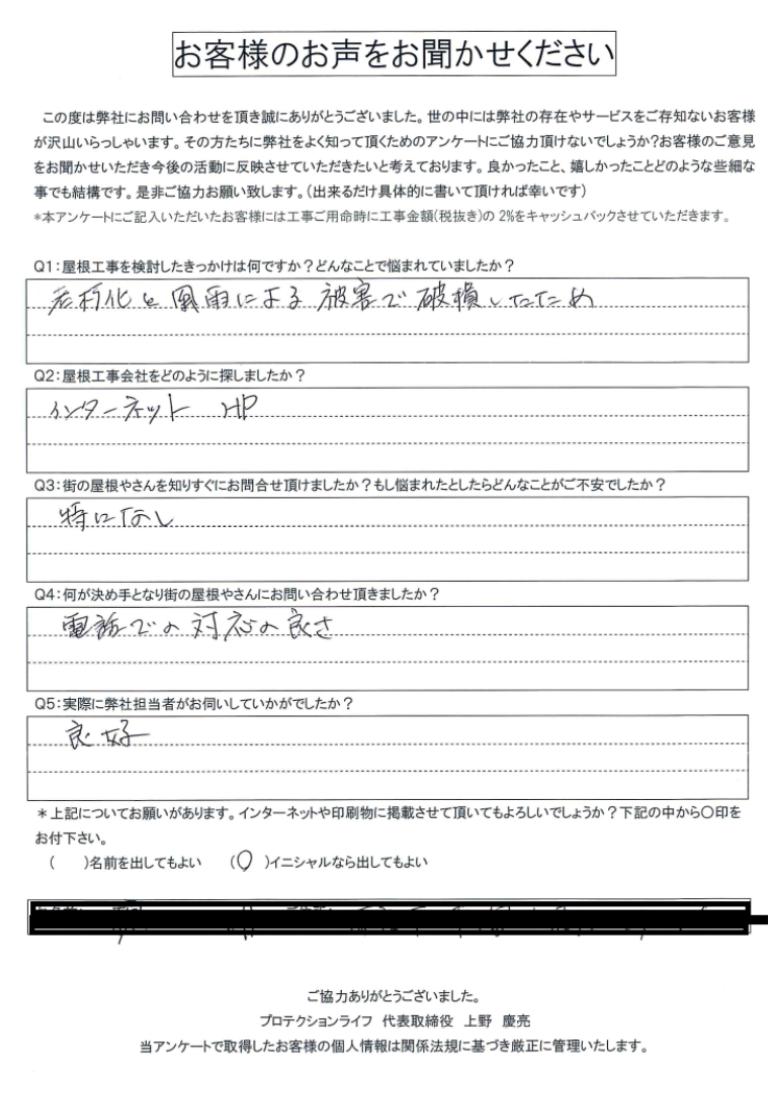 お客様のお声をお聞かせください
この度は弊社にお問い合わせを頂き誠にありがとうございました。世の中には弊社の存在やサービスをご存知ないお客様
が沢山いらっしゃいます。その方たちに弊社をよく知って頂くためのアンケートにご協力頂けないでしょうか?お客様のご意見
をお聞かせいただき今後の活動に反映させていただきたいと考えております。良かったこと、嬉しかったことどのような些細な
事でも結構です。是非ご協力お願い致します。(出来るだけ具体的に書いて頂ければ幸いです)
*本アンケートにご記入いただいたお客様には工事ご用命時に工事金額(税抜き)の 2%をキャッシュバックさせていただきます。
Q1:屋根工事を検討したきっかけは何ですか?どんなことで悩まれていましたか?
老朽化と風雨による被害で破損したため
Q2:屋根工事会社をどのように探しましたか?
インターネット HP
Q3:街の屋根やさんを知りすぐにお問合せ頂けましたか?もし悩まれたとしたらどんなことがご不安でしたか?
特になし
Q4:何が決め手となり街の屋根やさんにお問い合わせ頂きましたか?
電話での対応の良さ
Q5:実際に弊社担当者がお伺いしていかがでしたか?
良好
*上記についてお願いがあります。インターネットや印刷物に掲載させて頂いてもよろしいでしょうか?下記の中から〇印を
お付下さい。
( )名前を出してもよい (〇)イニシャルなら出してもよい
ご協力ありがとうございました。
プロテクションライフ 代表取締役 上野 慶亮
当アンケートで取得したお客様の個人情報は関係法規に基づき厳正に管理いたします。